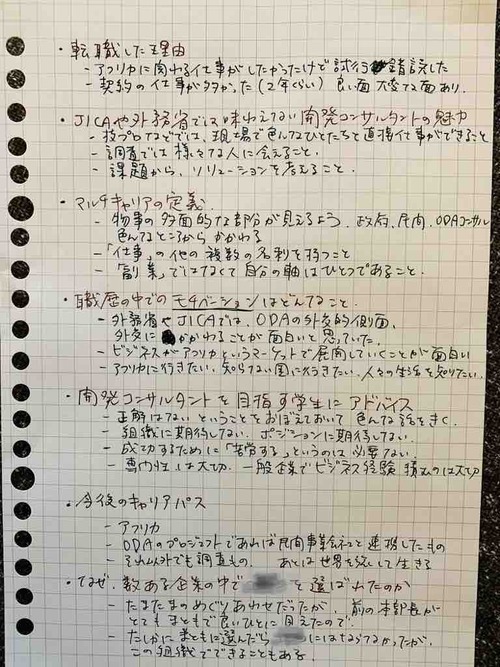 ・転職した理由
- アフリカに関わる仕事がしたかったけど試行錯誤した
- 契約の仕事が多かった(2年くらい) 良い面大変な面あり。
・JICAや外務省では味わえない開発コンサルタントの魅力
- 技プロなどでは、現場で色んなひとたちと直接仕事ができること
- 調査では様々な人に会えること。
- 課題から、ソリューションを考えること。
・マルチキャリアの定義
- 物事の多面的な部分が見えるよう、政府、民間、ODAコンサル
色んなところからかかわる
- 「仕事」の他の複数の名刺を持つこと
- 「副業」ではなくて自分の軸はひとつであること。
・職歴の中でのモチベーションはどんなこと。
- 外務省やJICAでは、ODAの外交的側面、
外交にかかわることが面白いと思っていた。
- ビジネスがアフリカというマーケットで展開していくことが面白い
- アフリカに行きたい、知らない国に行きたい、人々の生活を知りたい。
・開発コンサルタントを目指す学生にアドバイス
- 正解はないということをおぼえておいて 色んな話をきく。
- 組織に期待しない。ポジションに期待しない。
- 成功するために「苦労する」というのは必要ない。
- 専門性は大切。一般企業でビジネス経験 積むのは大切
・今後のキャリアパス
- アフリカ
- ODAのプロジェクトであれば民間事業会社と連携したもの
- それ以外でも調査もの。あとは世界を旅して生きる
・なぜ、数ある企業の中で を選ばれたのか
- たまたまのめぐりあわせだったが、前の本部長が
とてもまともで良いひとに見えたので。
- たしかにまともに選んだら にはならなかったが、
この組織でできることもある